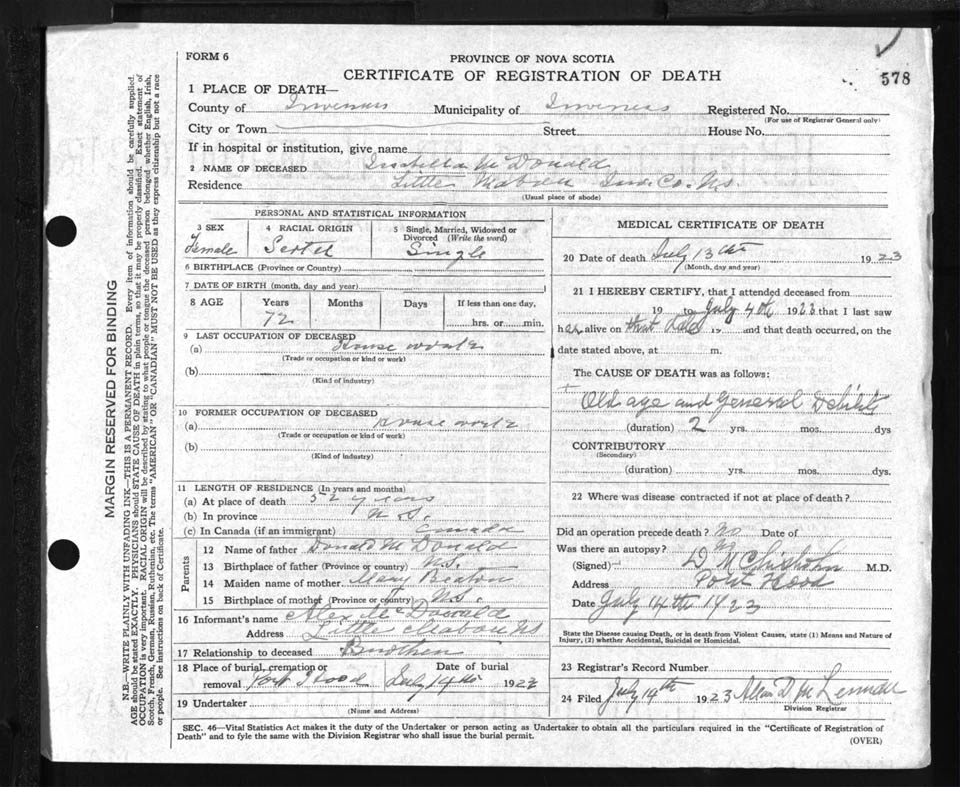 FORM 6
PROVINCE OF NOVA SCOTIA
CERTIFICATE OF REGISTRATION OF DEATH
578
1 PLACE OF DEATH—
County of Inverness Municipality of Inverness Registered No.
(For use of Registrar General only)
City or Town Street House No.
If in hospital or institution, give name
2 NAME OF DECEASED Isabella McDonald
Residence Little Mabou Inv. Co. N.S.
(Usual place of abode)
PERSONAL AND STATISTICAL INFORMATION
3 SEX 4 RACIAL ORIGIN 5 Single, Married, Widowed or Divorced (Write the word)
Female Single
6 BIRTHPLACE (Province or Country)
7 DATE OF BIRTH (month, day and year)
8 AGE Years Months Days If less than one day,
72 hrs. or min.
9 LAST OCCUPATION OF DECEASED
(a) House work
(Trade or occupation or kind or work)
(b)
(Kind of industry)
10 FORMER OCCUPATION OF DECEASED
(a) House work
(Trade or occupation or kind of work)
(b)
(Kind of industry)
11 LENGTH OF RESIDENCE (In years and months)
(a) At place of death 52 years
(b) In province N.S.
(c) In Canada (if an immigrant) Canada
Parents
12 Name of father Donald McDonald
13 Birthplace of father (Province or country) N.S.
14 Maiden name of mother Mary Beaton
15 Birthplace of mother (Province or country) N.S.
16 Informant's name Alex McDonald
Address Little Mabou NS
17 Relationship to deceased Brother
18 Place of burial, cremation or removal Port Hood Date of burial July 14th 1923
19 Undertaker
(Name and Address)
MEDICAL CERTIFICATE OF DEATH
20 Date of death July 13th 1923
(Month, day and year)
21 I HEREBY CERTIFY, that I attended deceased from
19 to July 4th 1923 that I last saw
her alive on that date 19 and that death occurred, on the
date stated above, at m.
The CAUSE OF DEATH was as follows:
Old age and General Debility
(duration) 2 yrs. mos. dys
CONTRIBUTORY
(Secondary)
(duration) yrs. mos. dys.
22 Where was disease contracted if not at place of death?
Did an operation precede death? No Date of
Was there an autopsy? No
(Signed) D McChisholm M.D.
Address Port Hood
Date July 14th 1923
State the Disease causing Death, or in death from Violent Causes, state (1) Means and Nature of
Injury, (2) whether Accidental, Suicidal or Homicidal.
23 Registrar's Record Number
24 Filed July 14th 1923 Allan D McLennan
Division Registrar
SEC. 46—Vital Statistics Act makes it the duty of the Undertaker or person acting as Undertaker to obtain all the particulars required in the "Certificate of Registration of
Death" and to fyle the same with the Division Registrar who shall issue the burial permit.
(OVER)
MARGIN RESERVED FOR BINDING
N.B.—WRITE PLAINLY WITH UNFADING INK—THIS IS A PERMANENT RECORD. Every item of information should be carefully supplied.
AGE should be stated EXACTLY. PHYSICIANS should STATE CAUSE OF DEATH in plain terms, so that it may be properly classified. Exact statement of
OCCUPATION is very important. RACIAL ORIGIN will be described by stating to what people or tongue the deceased person belonged whether English, Irish,
Scotch, French, German, Russian, Ruthenian, etc. The terms "AMERICAN" OR "CANADIAN" MUST NOT BE USED as they express citizenship but not a race
or people. See instructions on back of Certificate.